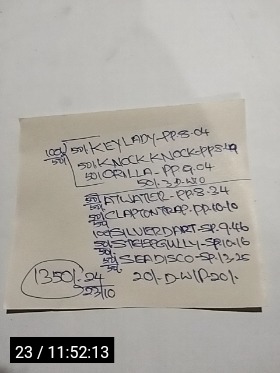 50/. KEYLADY-PP.8-04
100/. 50/. 50/. KNOCK KNOCK-PP8-49
50/. ORILLA-PP.9.04
50/. 3-D-W10
50/. ATWATTER-PP.8-34
50/. CLAPTONTRAP-PP.10-10
100/. SILVERDART-SP.9-46
STEEPGULLY-SP.10-16
SEADISCO-SP.13-25
1350/. 24 20/-D-W/P-20/.
23/10
23 / 11:52:13